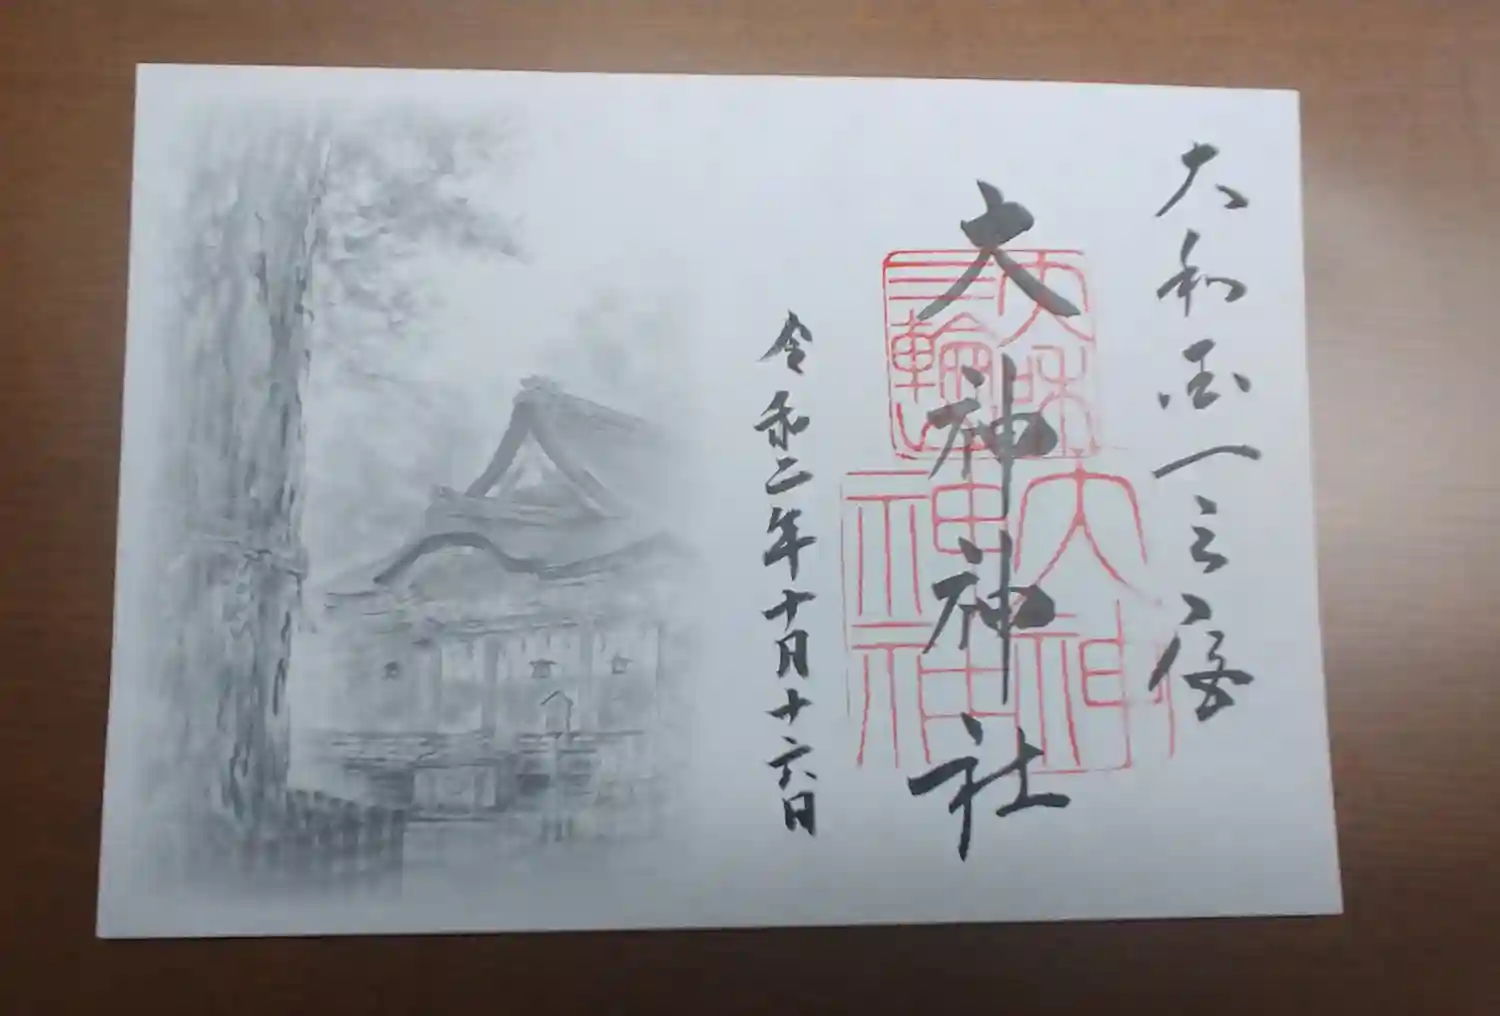 大和国一之宮
大神神社
三輪
大神
神社
令和二年十月十六日